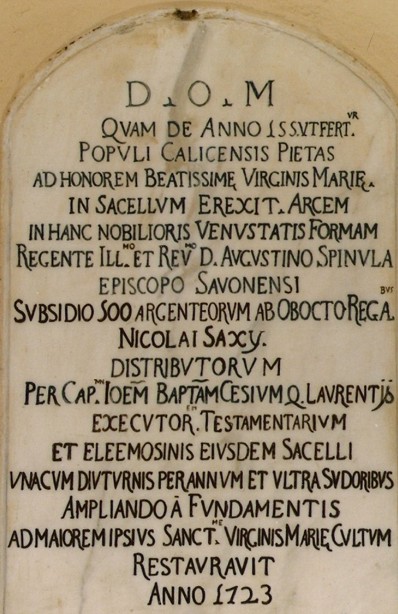 D.O.M
QVAM DE ANNO 155. VT FERTVR.
POPVLI CALICENSIS PIETAS
AD HONOREM BEATISSIMĘ VIRGINIS MARIĘ.
IN SACELLVM EREXIT. ARCEM
IN HANC NOBILIORIS VENVSTATIS FORMAM
REGENTE ILL.MO ET REV.MO D. AVGVSTINO SPINVLA
EPISCOPO SAVONENSI
SVBSIDIO 500 ARGENTEORVM AB OBOCTO REGA.BVS
NICOLAI SAXY.
DISTRIBVTORVM
PER CAP.NN IOEM̄ BAPTAM̄ CESIVM Q. LAVRENTIJS
EXECVTOR.EM TESTAMENTARIVM
ET ELEEMOSINIS EIVSDEM SACELLI
VNACVM DIVTVRNIS PER ANNVM ET VLTRA SVDORIBVS
AMPLIANDO À FVNDAMENTIS
AD MAIOREM IPSIVS SANCT.ME VIRGINIS MARIĘ CVLTVM
RESTAVRAVIT
ANNO 1723